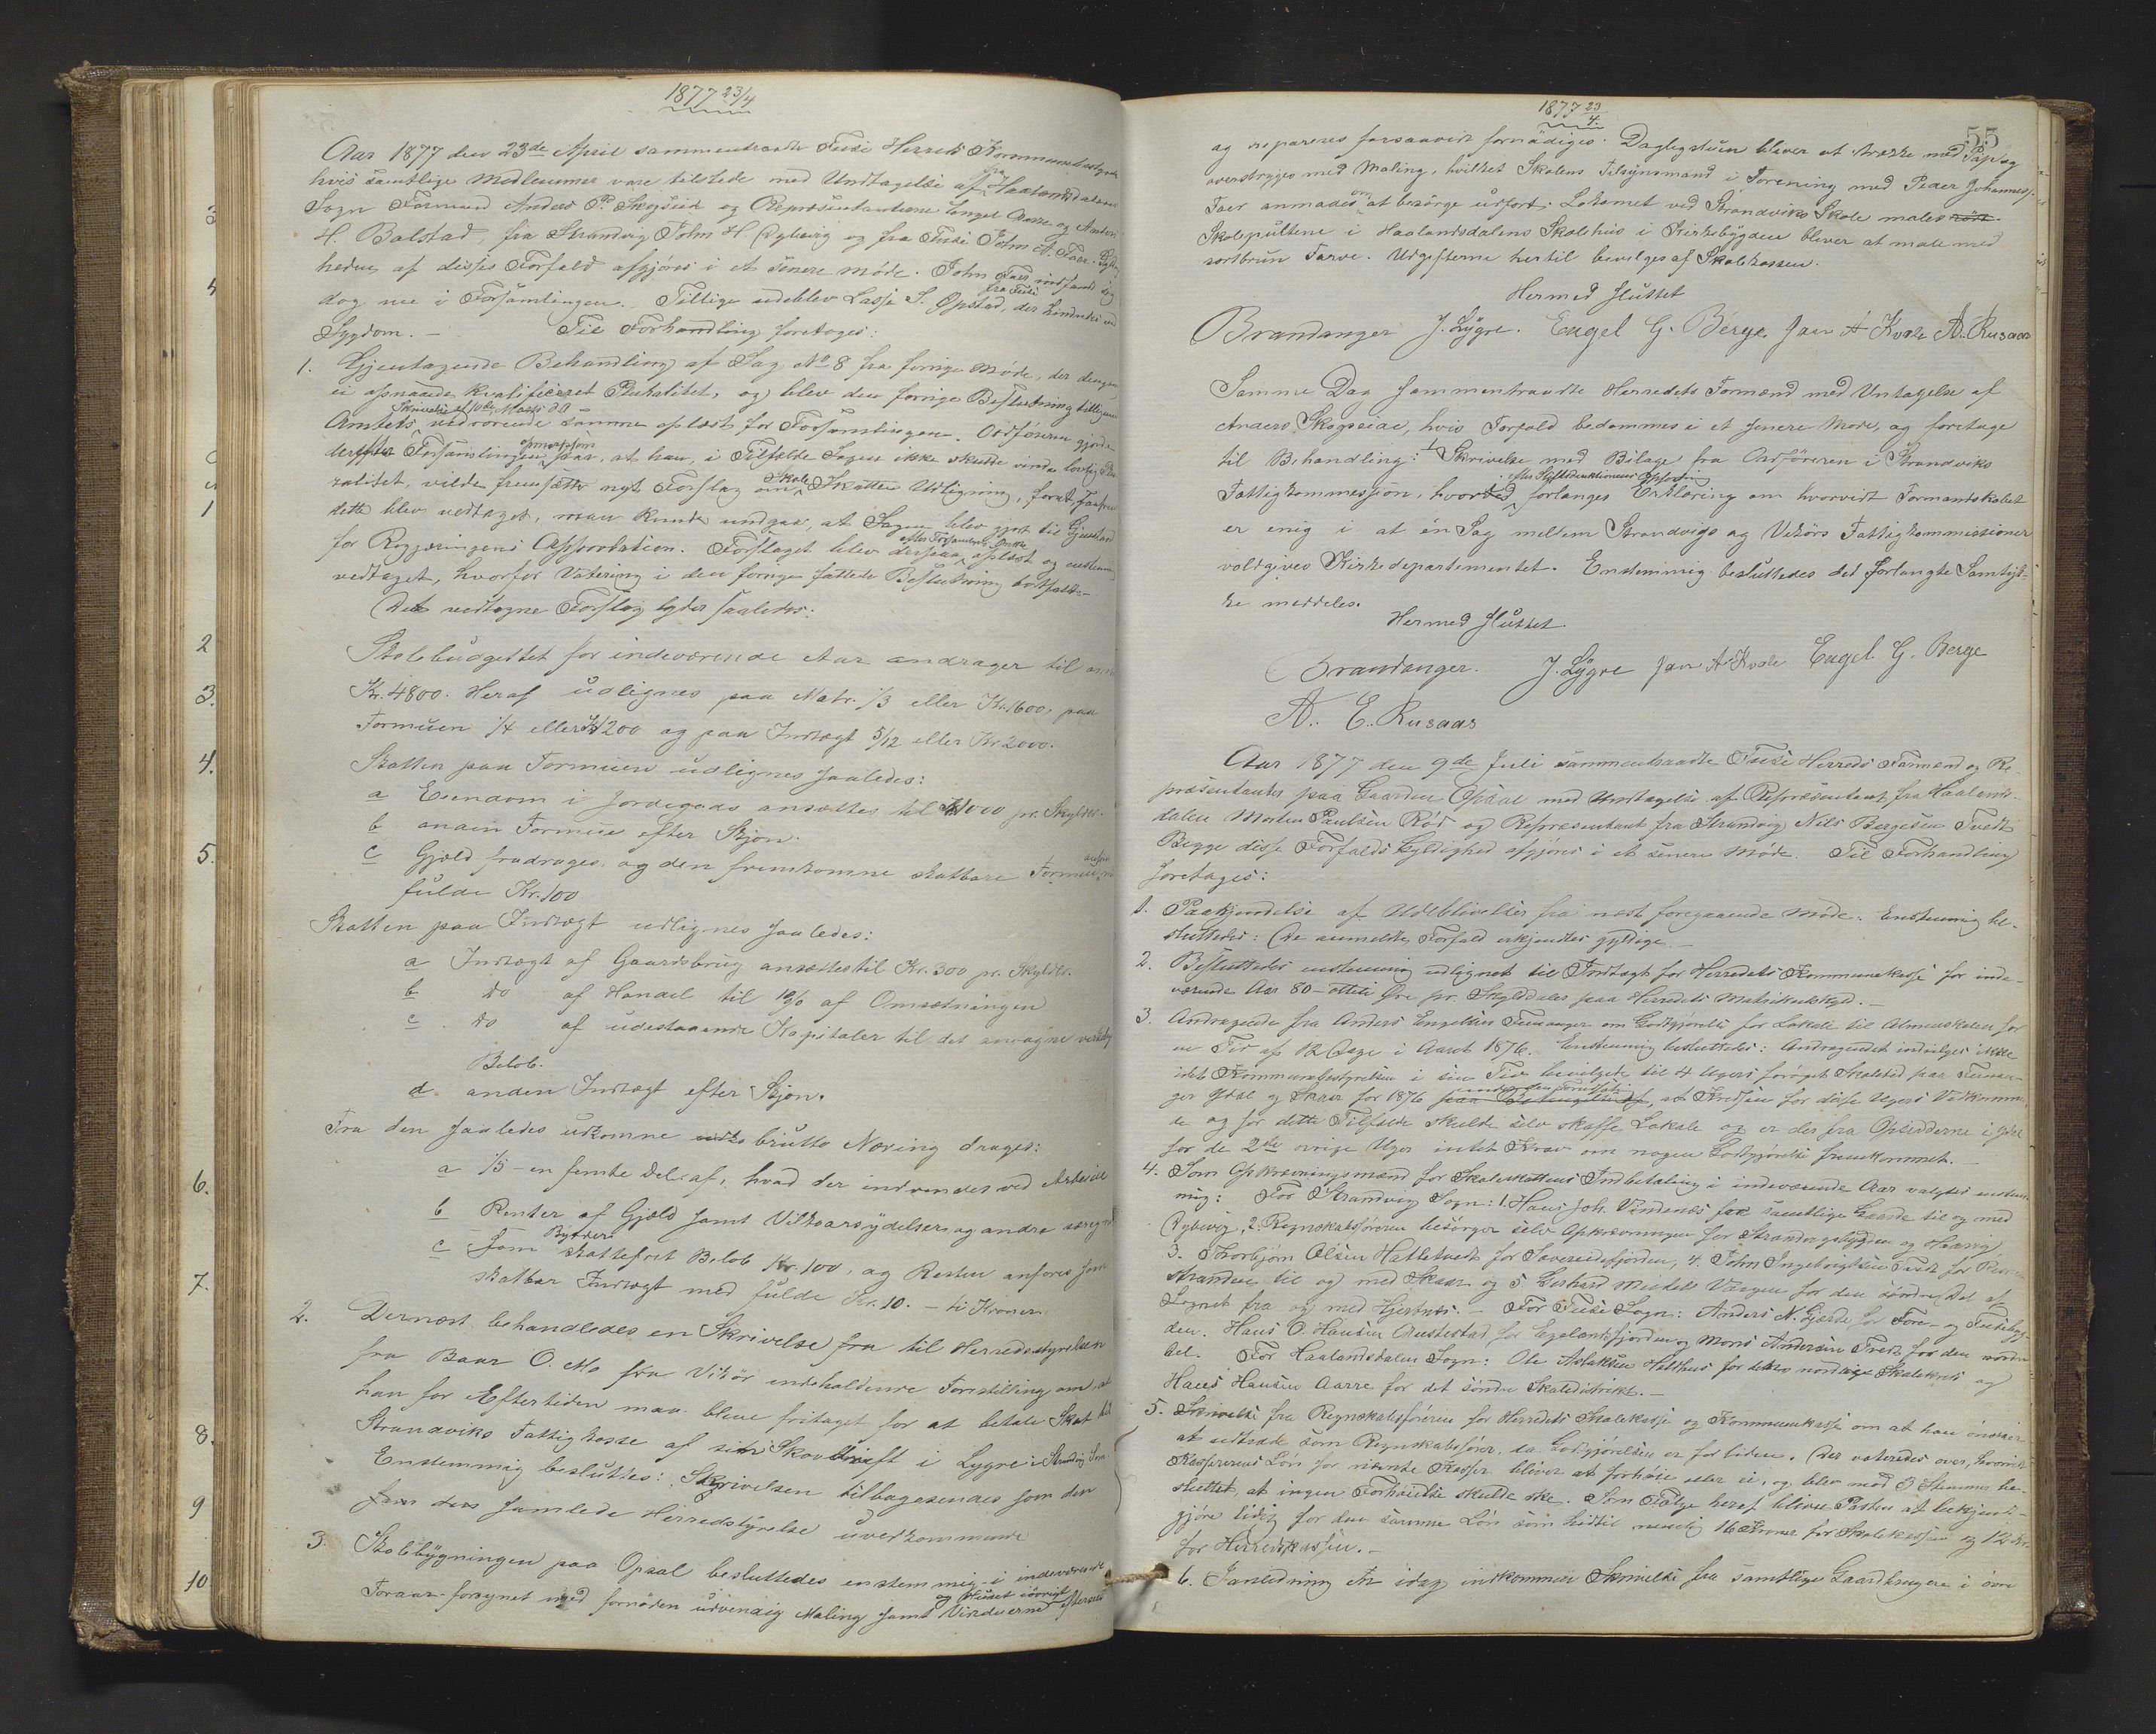 1877 23/4
Aar 1877 den 23de April sammentraadte Fuse Herreds Kommunebestyrelse
hvis samtlige Medlemmer vare tilstede med Undtagelse af fra Haalandsdalens
Sogn Formand Anders P. Skogseid og Repræsentanterne Aarre og Anders
H. Bolstad, fra Strandvig John H. Dybevig og fra Fuse John A. Faer. Gyldig-
heden af disses Forfald afgjøres i et senere Møde. John Faer indfandt sig
dog nu i Forsamlingen. Tillige udeblev fra Fuse Lasse S. Opstad, der hindredes ved
Sygdom. – Til Forhandling foretoges:
1. Gjentagende Behandling af Sag No 8 fra forrige Møde, der dengang
ei opnaaede kvalificeret Pluralitet, og blev den forrige Beslutning tilligemed
Amtets Skrivelse af Marts d A vedrørende samme oplæst for Forsamlingen. Ordføreren gjorde
derefter Forsamlingen opmærksom paa, at han, i Tilfælde Sagen ikke skulde vinde lovlig Plu-
ralitet, vilde fremsætte nyt Forslag om Skole Skattens Udligning, forat, saafremt
dette blev vedtaget, man kunde undgaa, at Sagen blev gjort til Gjenstand
for Regjeringens Approbation. Forslaget blev derpaa efter Forsamlingens Ønske oplæst og enstemmig
vedtaget, hvorfor Votering i den forrige fattede Beslutning bortfaldt.
Det vedtagne Forslag lyder saaledes:
Skolebudgettet for indeværende Aar andrager til
Kr. 4800. Heraf udlignes paa Matr. 1/3 eller Kr. 1600, paa
Formuen 1/4 eller Kr 1200 og paa Indtægt 5/12 eller Kr. 2000.
Skatten paa Formuen udlignes saaledes:
a Eiendom i Jordegods ansættes til Kr 1000 pr. Skyldlr.
b anden Formue efter Skjøn.
c Gjæld fradrages og den fremkomne skatbare Formue anføres med
fulde Kr. 100
Skatten paa Indtægt udlignes saaledes:
a Indtægt af Gaardsbrug ansættes til Kr. 300 pr. Skyldlr.
b do af Handel til 10% af Omsætningen
c do af udestaaende Kapitaler til det antagne virkelig
Beløb.
d anden Indtægt efter Skjøn.
Fra den saaledes udkomne brutto Næring drages:
a 1/5 – en femte Del af, hvad der indvindes ved Arbeide
b Renter af Gjæld samt Vilkaarsydelser og andre særegne
Byrder
c Som skattefrit Beløb Kr. 100, og Resten anføres som
skatbar Indtægt med fulde Kr. 10. – ti Kroner.
2. Dernæst behandledes en Skrivelse fra til Herredsstyrelsen
fra Baar O. Mo fra Vikør indeholdende Forestilling om, at
han for Eftertiden maa blive fritaget for at betale Skat til
Strandviks Fattigkasse af sin Skovdrift i Lygre i Strandvig Sogn
Enstemmig besluttes: Skrivelsen tilbagesendes som den
den samlede Herredstyrelse uvedkommende
3. Skolebygningen paa Opsal besluttedes enstemmig i indeværende
Foraar forsynet med fornøden udvendig Maling samt Vinduerne og Huset iøvrigt efterseet
1877 23/4.
55
og repareres forsaavidt fornødiges. Daglegstuen bliver at trække med Pap og
overstryges med Maling, hvilket Skolens Tilsynsmand i Forening med Peder Johannessen
Faer anmodes om at besørge udført. Lokomet ved Strandviks Skole males
Skolepultene i Haalandsdalens Skolehus i Kirkebygden bliver at male med
sortbrun Farve. Udgifterne hertil bevilges af Skolekassen.
Hermed sluttet
Brandanger J. Lygre. Engel G. Berge Jan A Kvale A. E. Rusaas
Samme Dag sammentraadte Herredets Formænd med Untagelse af
Anders Skogseide, hvis Forfald bedømmes i et senere Møde, og foretoge
til Behandling: 1 Skrivelse med Bilage fra Ordføreren i Strandviks
Fattigkommission, hvorved efter Stiftsdirektionens Opfordring forlanges Erklæring om hvorvidt Formandskabet
er enig i at én Sag mellem Strandvigs og Vikørs Fattigkommissioner
voldgives Kirkedepartementet. Enstemmig besluttedes det forlangte Samtyk-
ke meddeles.
Hermed sluttet.
Brandanger. J. Lygre Jan A Kvale Engel. G. Berge
A. E. Rusaas
Aar 1877 den 9de Juli sammentraadte Fuse Herreds Formænd og Re-
præsentanter paa Gaarden Opsal med Undtagelse af Repræsentant fra Haalands-
dalen Morten Paulsen Rød og Repræsentant fra Strandvig Nils Bergesen Tvedt
Begge disse Forfalds Gyldighed afgjøres i et senere Møde. Til Forhandling
foretages:
1. Paakjendelse af Udeblivelser fra næst foregaaende Møde: Enstemmig be-
sluttedes: De anmeldte Forfald erkjendtes gyldige. –
2. Besluttedes enstemmig udlignet til Indtægt for Herredets Kommunekasse for inde-
værende Aar 80 – otteti Øre pr. Skylddaler paa Herredets Matrikulskyld. –
3. Andragende fra Anders Engelsen Teranger om Godtgjørelse for Lokale til Almueskolen for
en Tid af 12 Dage i Aaret 1876. Enstemmig besluttedes: Andragendet indvilges ikke
idet Kommunebestyrelsen i sin Tid bevilgede til 4 Ugers forøget Skoletid paa Teran-
ger Ydal og Skaar for 1876 under den Forudsætning, at Kredsen for disse Ugers Vedkommen-
de og for dette Tilfælde skulde selv skaffe Lokale og er der fra Opsidderne i Ydal
for de 2de øvrige Uger intet Krav om nogen Godtgjørelse fremkommet. –
4. Som Opkrævningsmænd for Skoleskattens Indbetaling i indeværende Aar valgtes enstem-
mig: For Strandvig Sogn: 1. Hans Joh. Vindenes for samtlige Gaarde til og med
Dybevig, 2. Regnskabsføreren besørger selv Opkrævningen for Strandvigsbygden og Hævig
3. Thorbjørn Olsen Hatletvedt for Sævereidefjorden, 4. John Ingebrigtsen Tvedt for
stranden til og med Skaar og 5 Gerhard Michels Vaagen for den søndre Del af
Sognet fra og med Hjertnes. – For Fuse Sogn: Anders N. Gjærde for Fore- og Fusebyg-
den. Hans O. Hansen Austestad for Egelandsfjorden og Mons Andersen Tvedt for den nordre
Del. For Haalandsdalens Sogn: Ole Aslaksen Holdhus for det nordre Skolekreds og
Hans Hansen Aarre for det søndre Skoledistrikt. –
5. Skrivelse fra Regnskabsføreren for Herredets Skolekasse og Kommunekasse om at han ønsker
at udtræde som Regnskabsfører, da Godtgjørelsen er for liden. Der voteredes over, hvorvidt
Kassererens Løn for nævnte Kasser bliver at forhøie eller ei, og blev med 5 Stemmer be-
sluttet, at ingen Forhøielse skulde ske. Som Følge heraf bliver Posten at bekjendt-
gjøre ledig for den samme Løn som hidtil nemlig 16 Kroner for Skolekassen og 12 Kr.
for Herredskassen. –
6. I Anledning en idag indkommen Skrivelse fra samtlige Gaardbrugere i øvre
3
4
1
2
3.
4.
5.
6.
7.
8.
9
10